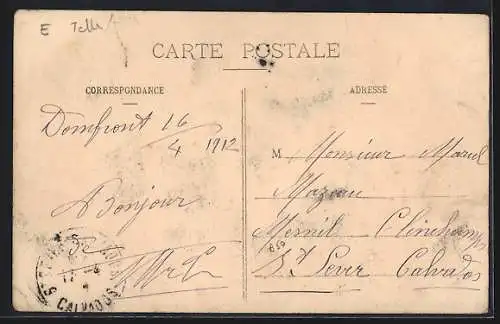 E
CARTE POSTALE
CORRESPONDANCE
ADRESSE
Domfront 16/4 1912
Bonjour
M Monsieur Marcel
Mazeau
Mesnil Clinchamps
St Sever Calvados
CALVADOS